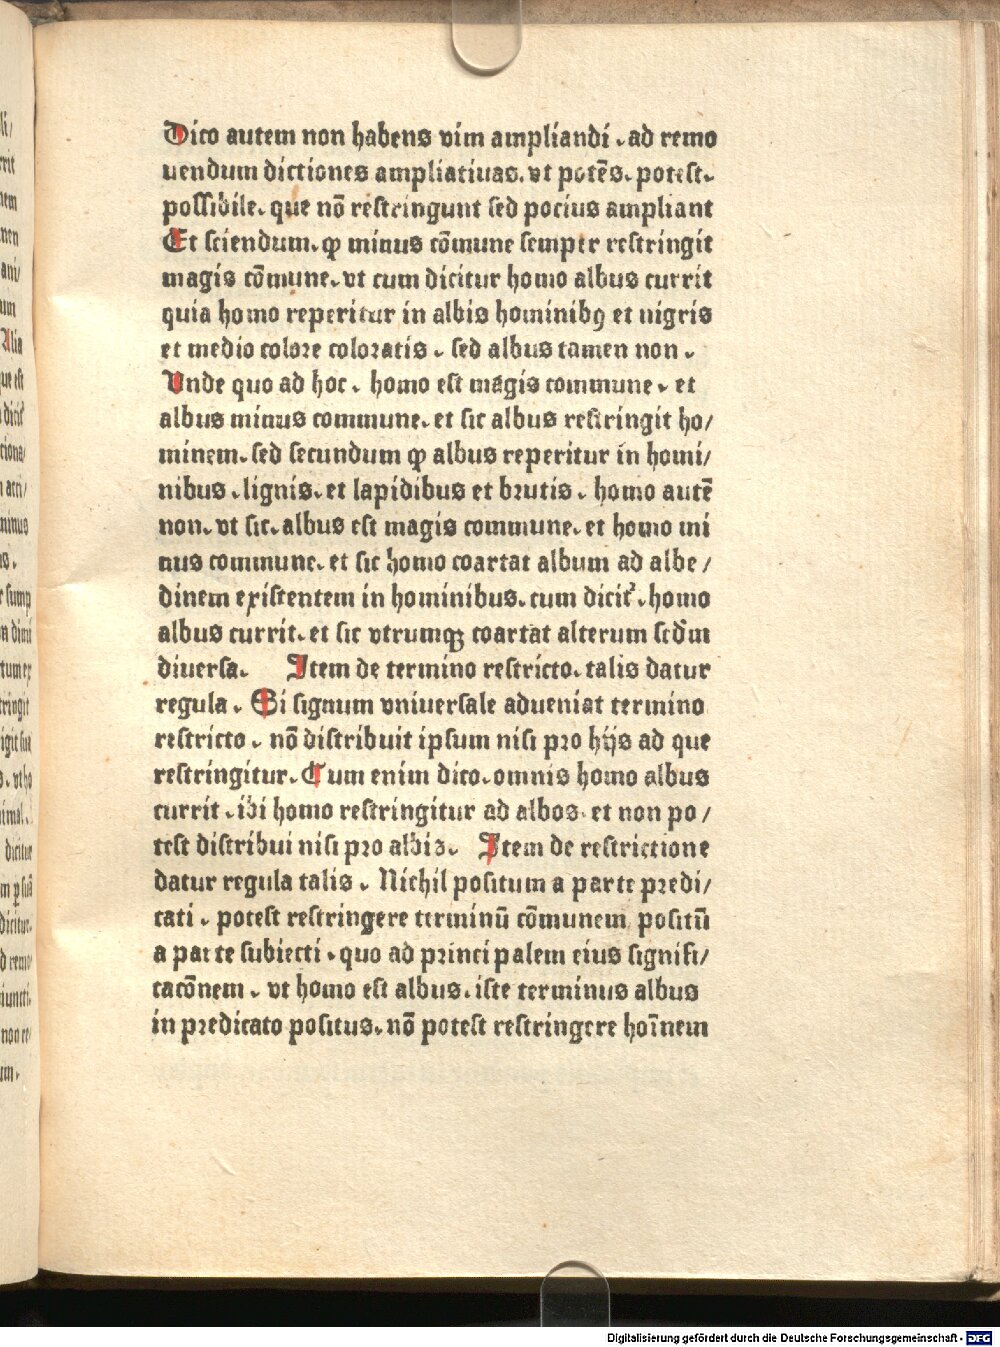 Dico autem non habens vim ampliandi . ad remo
uendum dictiones ampliatiuas. vt potēs. potest.
possibile. que nō restringunt sed pocius ampliant
Et sciendum. ꝙ minus cōmune semper restringit
magis cōmune. vt cum dicitur homo albus currit
quia homo reperitur in albis hominibꝰ et nigris
et medio colore coloratis . sed albus tamen non .
Vnde quo ad hoc . homo est magis commune . et
albus minus commune. et sic albus restringit ho/
minem. sed secundum ꝙ albus reperitur in homi/
nibus . lignis. et lapidibus et brutis . homo autē
non. vt sic. albus est magis commune. et homo mi
nus commune. et sic homo coartat album ad albe/
dinem existentem in hominibus. cum dicit᷑ . homo
albus currit. et sic vtrumqꝫ coartat alterum scd'm
diuersa. Item de termino restricto. talis datur
regula . Si signum vniuersale adueniat termino
restricto . nō distribuit ipsum nisi pro hijs ad que
restringitur. Cum enim dico. omnis homo albus
currit . ibi homo restringitur ad albos. et non po/
test distribui nisi pro albis. Item de restrictione
datur regula talis . Nichil positum a parte predi/
cati . potest restringere terminū cōmunem positū
a parte subiecti . quo ad principalem eius signifi/
cacōnem . vt homo est albus. iste terminus albus
in predicato positus. nō potest restringere hoīnem
Digitalisierung gefördert durch die Deutsche Forschungsgemeinschaft - DFG